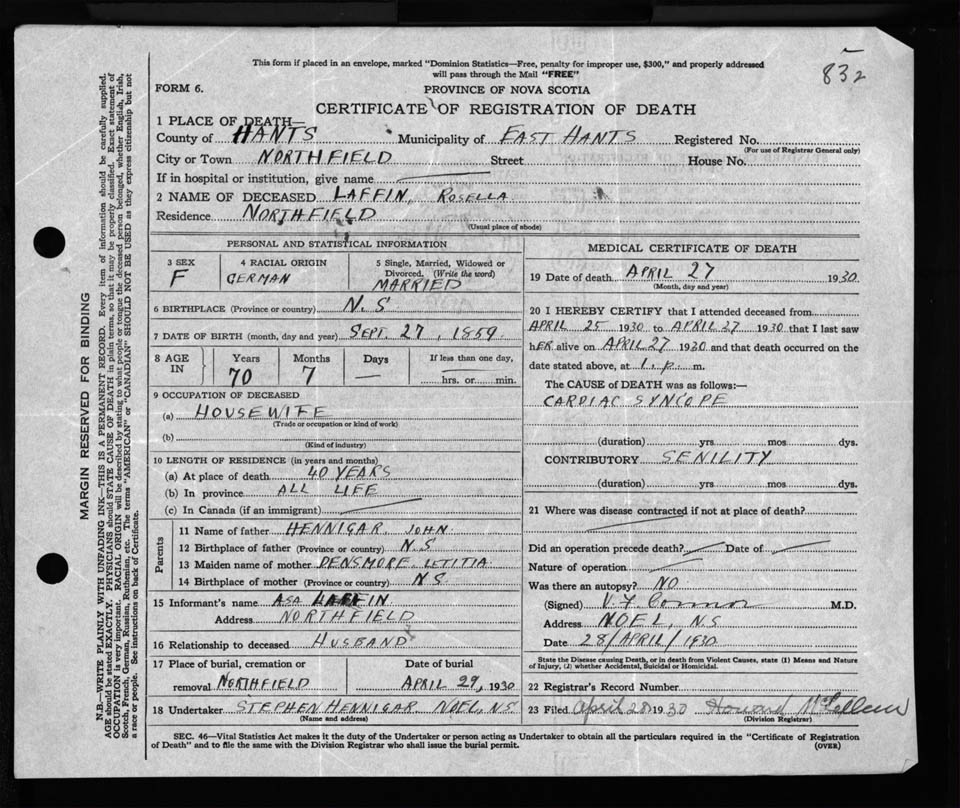 This form if placed in an envelope, marked "Dominion Statistics—Free, penalty for improper use, $300," and properly addressed
will pass through the Mail "FREE"
832
FORM 6.
PROVINCE OF NOVA SCOTIA
CERTIFICATE OF REGISTRATION OF DEATH
1 PLACE OF DEATH—
County of HANTS Municipality of EAST HANTS Registered No.
(For use of Registrar General only)
City or Town NORTHFIELD Street House No.
If in hospital or institution, give name
2 NAME OF DECEASED LAFFIN, ROSELLA
Residence NORTHFIELD
(Usual place of abode)
PERSONAL AND STATISTICAL INFORMATION
3 SEX 4 RACIAL ORIGIN 5 Single, Married, Widowed or
Divorced. (Write the word)
F GERMAN MARRIED
6 BIRTHPLACE (Province or country) N.S
7 DATE OF BIRTH (month, day and year) SEPT. 27, 1859
8 AGE IN Years Months Days If less than one day,
70 7 — hrs. or min.
9 OCCUPATION OF DECEASED
(a) HOUSEWIFE
(Trade or occupation or kind of work)
(b)
(Kind of industry)
10 LENGTH OF RESIDENCE (in years and months)
(a) At place of death 40 YEARS
(b) In province ALL LIFE
(c) In Canada (if an immigrant)
Parents
11 Name of father HENNIGAR, JOHN
12 Birthplace of father (Province or country) N.S
13 Maiden name of mother DENSMORE LETITIA
14 Birthplace of mother (Province or country) NS
15 Informant's name ASA LAFFIN
Address NORTHFIELD
16 Relationship to deceased HUSBAND
17 Place of burial, cremation or Date of burial
removal NORTHFIELD APRIL 29, 1930
18 Undertaker STEPHEN HENNIGAR NOEL, NS
(Name and address)
MEDICAL CERTIFICATE OF DEATH
19 Date of death APRIL 27 1930
(Month, day and year)
20 I HEREBY CERTIFY that I attended deceased from
APRIL 25 1930 to APRIL 27 1930 that I last saw
hER alive on APRIL 27 1930 and that death occurred on the
date stated above, at 1. p. m.
The CAUSE OF DEATH was as follows:—
CARDIAC SYNCOPE
(duration) yrs mos dys.
CONTRIBUTORY SENILITY
(duration) yrs. mos. dys.
21 Where was disease contracted if not at place of death?
Did an operation precede death? Date of
Nature of operation
Was there an autopsy? NO
(Signed) V.F. Connor M.D.
Address NOEL, N.S
Date 28/APRIL/1930
State the Disease causing Death, or in death from Violent Causes, state (1) Means and Nature
of Injury, (2) whether Accidental, Suicidal or Homicidal.
22 Registrar's Record Number
23 Filed April 28 1930 Howard McLellan
(Division Registrar)
SEC. 46—Vital Statistics Act makes it the duty of the Undertaker or person acting as Undertaker to obtain all the particulars required in the "Certificate of Registration
of Death" and to file the same with the Division Registrar who shall issue the burial permit.
(OVER)
MARGIN RESERVED FOR BINDING
N.B.—WRITE PLAINLY WITH UNFADING INK—THIS IS A PERMANENT RECORD. Every item of information should be carefully supplied.
AGE should be stated EXACTLY. PHYSICIANS should STATE CAUSE OF DEATH in plain terms, so that it may be properly classified. Exact statement of
OCCUPATION is very important. RACIAL ORIGIN will be described by stating to what people or tongue the deceased person belonged, whether English, Irish,
Scotch, French, German, Russian, Ruthenian, etc. The terms "AMERICAN" or "CANADIAN" SHOULD NOT BE USED as they express citizenship but not
a race or people. See instructions on back of Certificate.